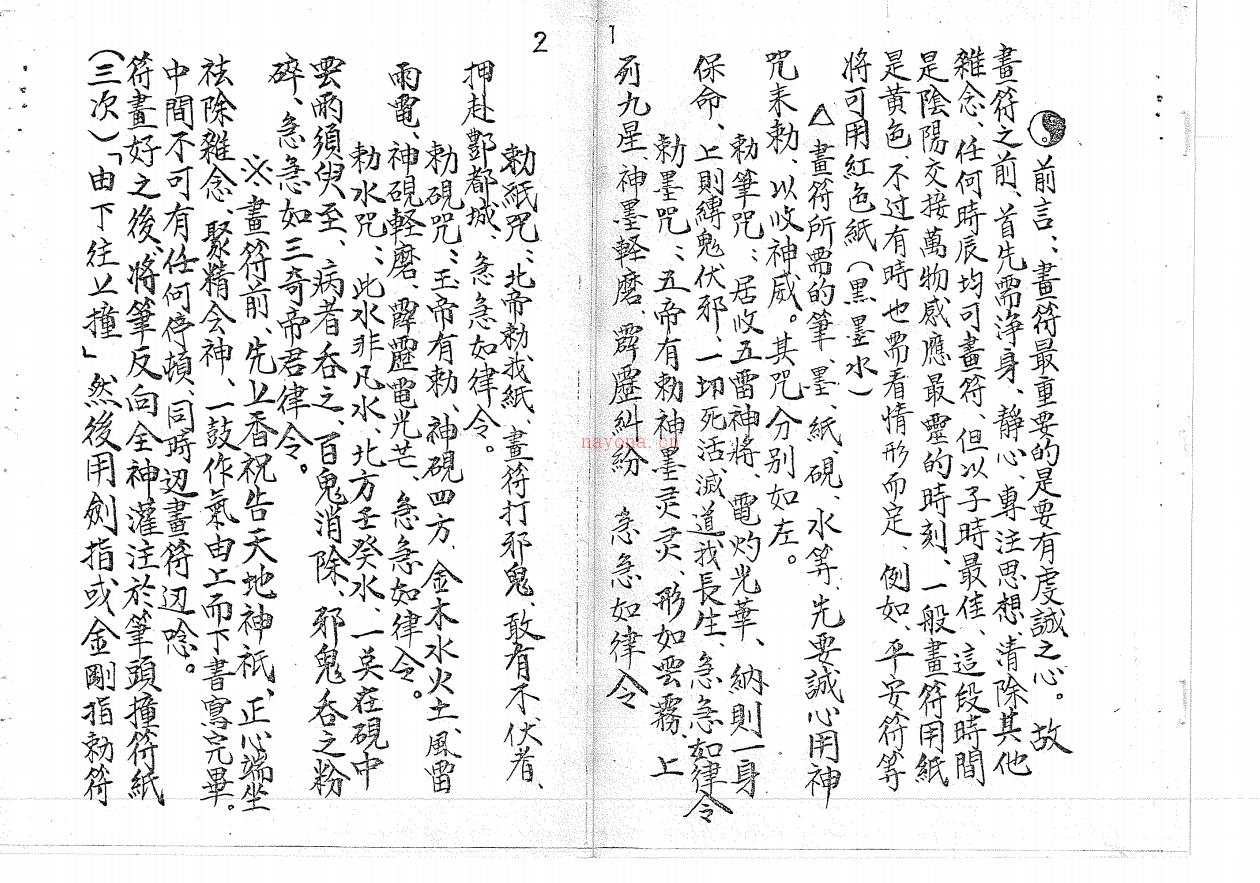 1
前言：畫符最重要的是要有虔誠之心。故
畫符之前、首先需淨身、靜心、專注思想、清除其他
雜念、任何時辰均可畫符、但以子時最佳、這段時間
是陰陽交接萬物感應最靈的時刻、一般畫符用紙
是黃色、不过有時也需看情形而定、例如、平安符等
將可用紅色紙(黑墨水)
△畫符所需的筆、墨、紙、硯、水等、先要誠心用神
咒来勅、以收神威。其咒分別如左。
勅筆咒：居收五雷神將、電灼光華、納則一身
保命、上則縛鬼伏邪、一切死活滅道我長生、急急如律令
勅墨咒：五帝有勅神墨灵灵、形如雲霧、上
列九星、神墨輕磨、霹靂糾紛 急急如律令
2
勅紙咒：北帝勅我紙、畫符打邪鬼、敢有不伏者、
押赴酆都城、急急如律令。
勅硯咒：玉帝有勅、神硯四方、金木水火土、風雷
雨電、神硯輕磨、霹靂電光芒、急急如律令。
勅水咒：此水非凡水、北方壬癸水、一英在硯中
雲雨須臾至、病者吞之、百鬼消除、邪鬼吞之粉
碎、急急如三奇帝君律令。
※畫符前、先上香祝告天地神祇、正心端坐
祛除雜念、聚精会神、一鼓作氣由上而下書寫完畢。
中間不可有任何停頓、同時边畫符边唸。
符畫好之後、將筆反向全神灌注於筆頭撞符紙
(三次)「由下往上撞」然後用劍指或金剛指勅符
nayona.cn